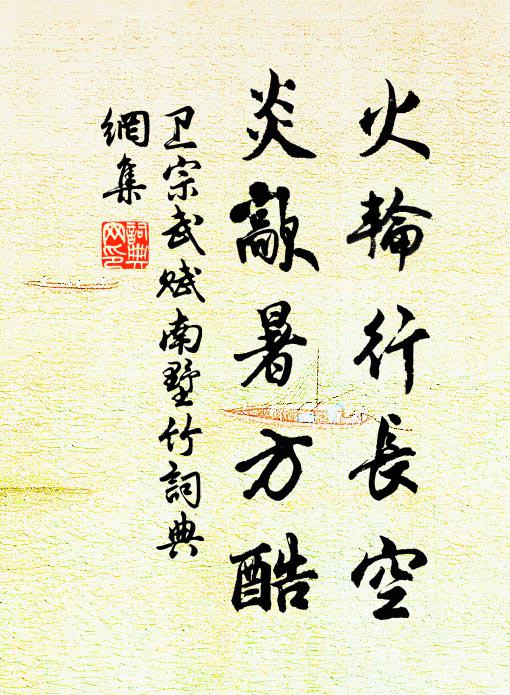 火輪行長空
炎歊暑方酷
卫宗武赋南墅竹詞典
網集
詞典
网印